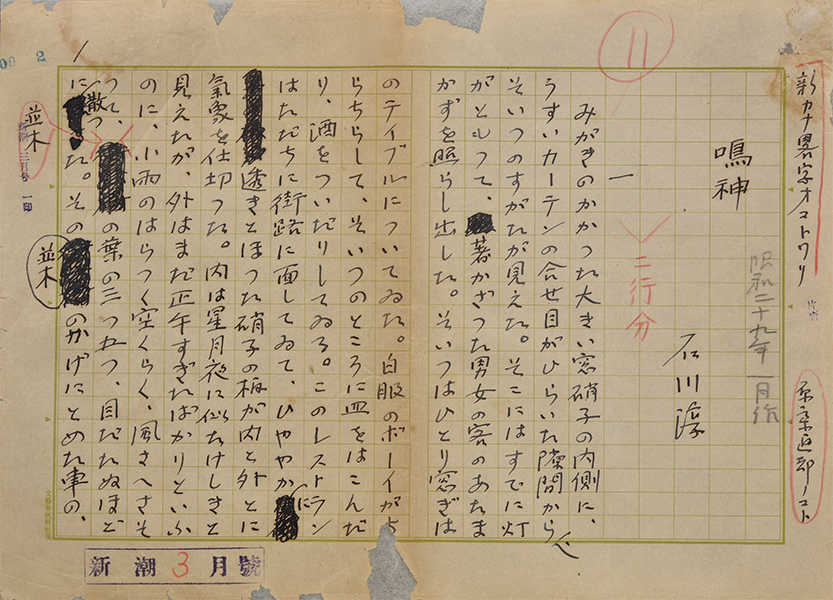 新カナ畧字オコトワリ
原稾返却ノコト
昭和二十九年一月作
11
鳴神
石川淳
二行分
一
みがきのかかつた大きい窓硝子の内側に、
うすいカーテンの合せ目がひらいた隙間から
そいつのすがたが見えた。そこにはすでに灯
がともつて、著かざつた男女の客のあたま
かずを照らし出した。そいつはひとり窓ぎは
のテイブルについてゐた。白服のボーイがち
らちらして、そいつのところに皿をはこんだ
り、酒をついだりしてゐる。このレストラン
はただちに街路に面してゐて、ひややかに
透きとほつた硝子の板が内と外とに
氣象を仕切つた。内は星月夜に似たけしきと
見えたが、外はまだ正午すぎたばかりといふ
のに、小雨のはらつく空くらく、風さへさそ
つて、並木の葉の三つ五つ、目だたぬほど
に散つた。その並木のかげにとめた車の、
2
新潮3月號